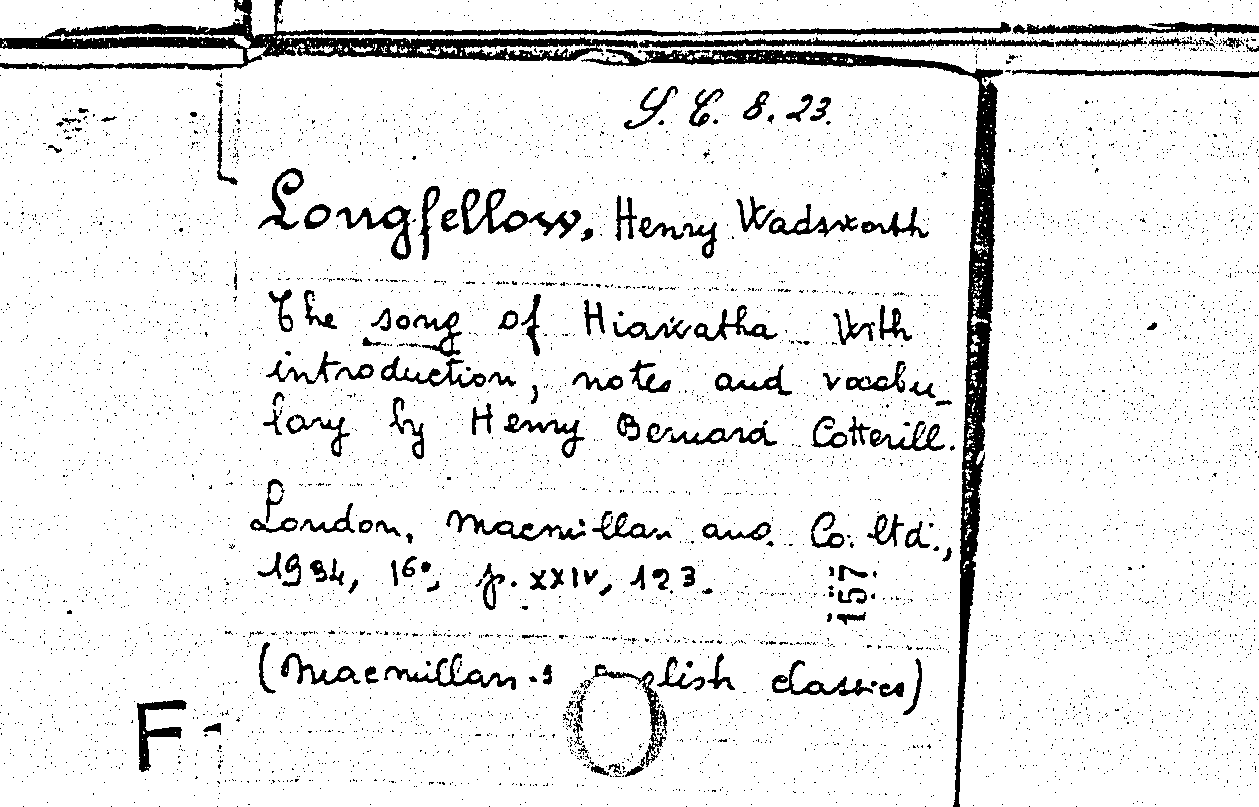 S. C. 8. 23.
Longfellow, Henry Wadsworth
The song of Hiawatha With
introduction, notes and vocabu_
lary by Henry Bernard Cotterill.
London, Macmillan and Co. ltd.,
1934, 16°, p. XXIV, 123.
157
(Macmillan's English classics)
F